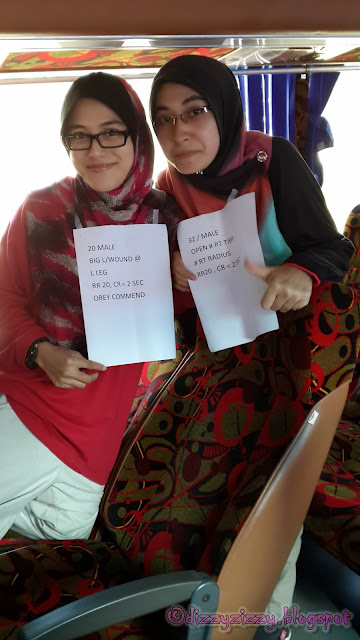 20 MALE
BIG L/WOUND @
L LEG
RR 20, CR < 2 SEC
OBEY COMMEND
32 / MALE
OPEN # RT TIB
# RT RADIUS
RR20 , CR < 2
©dizzyzizzy.blogspot